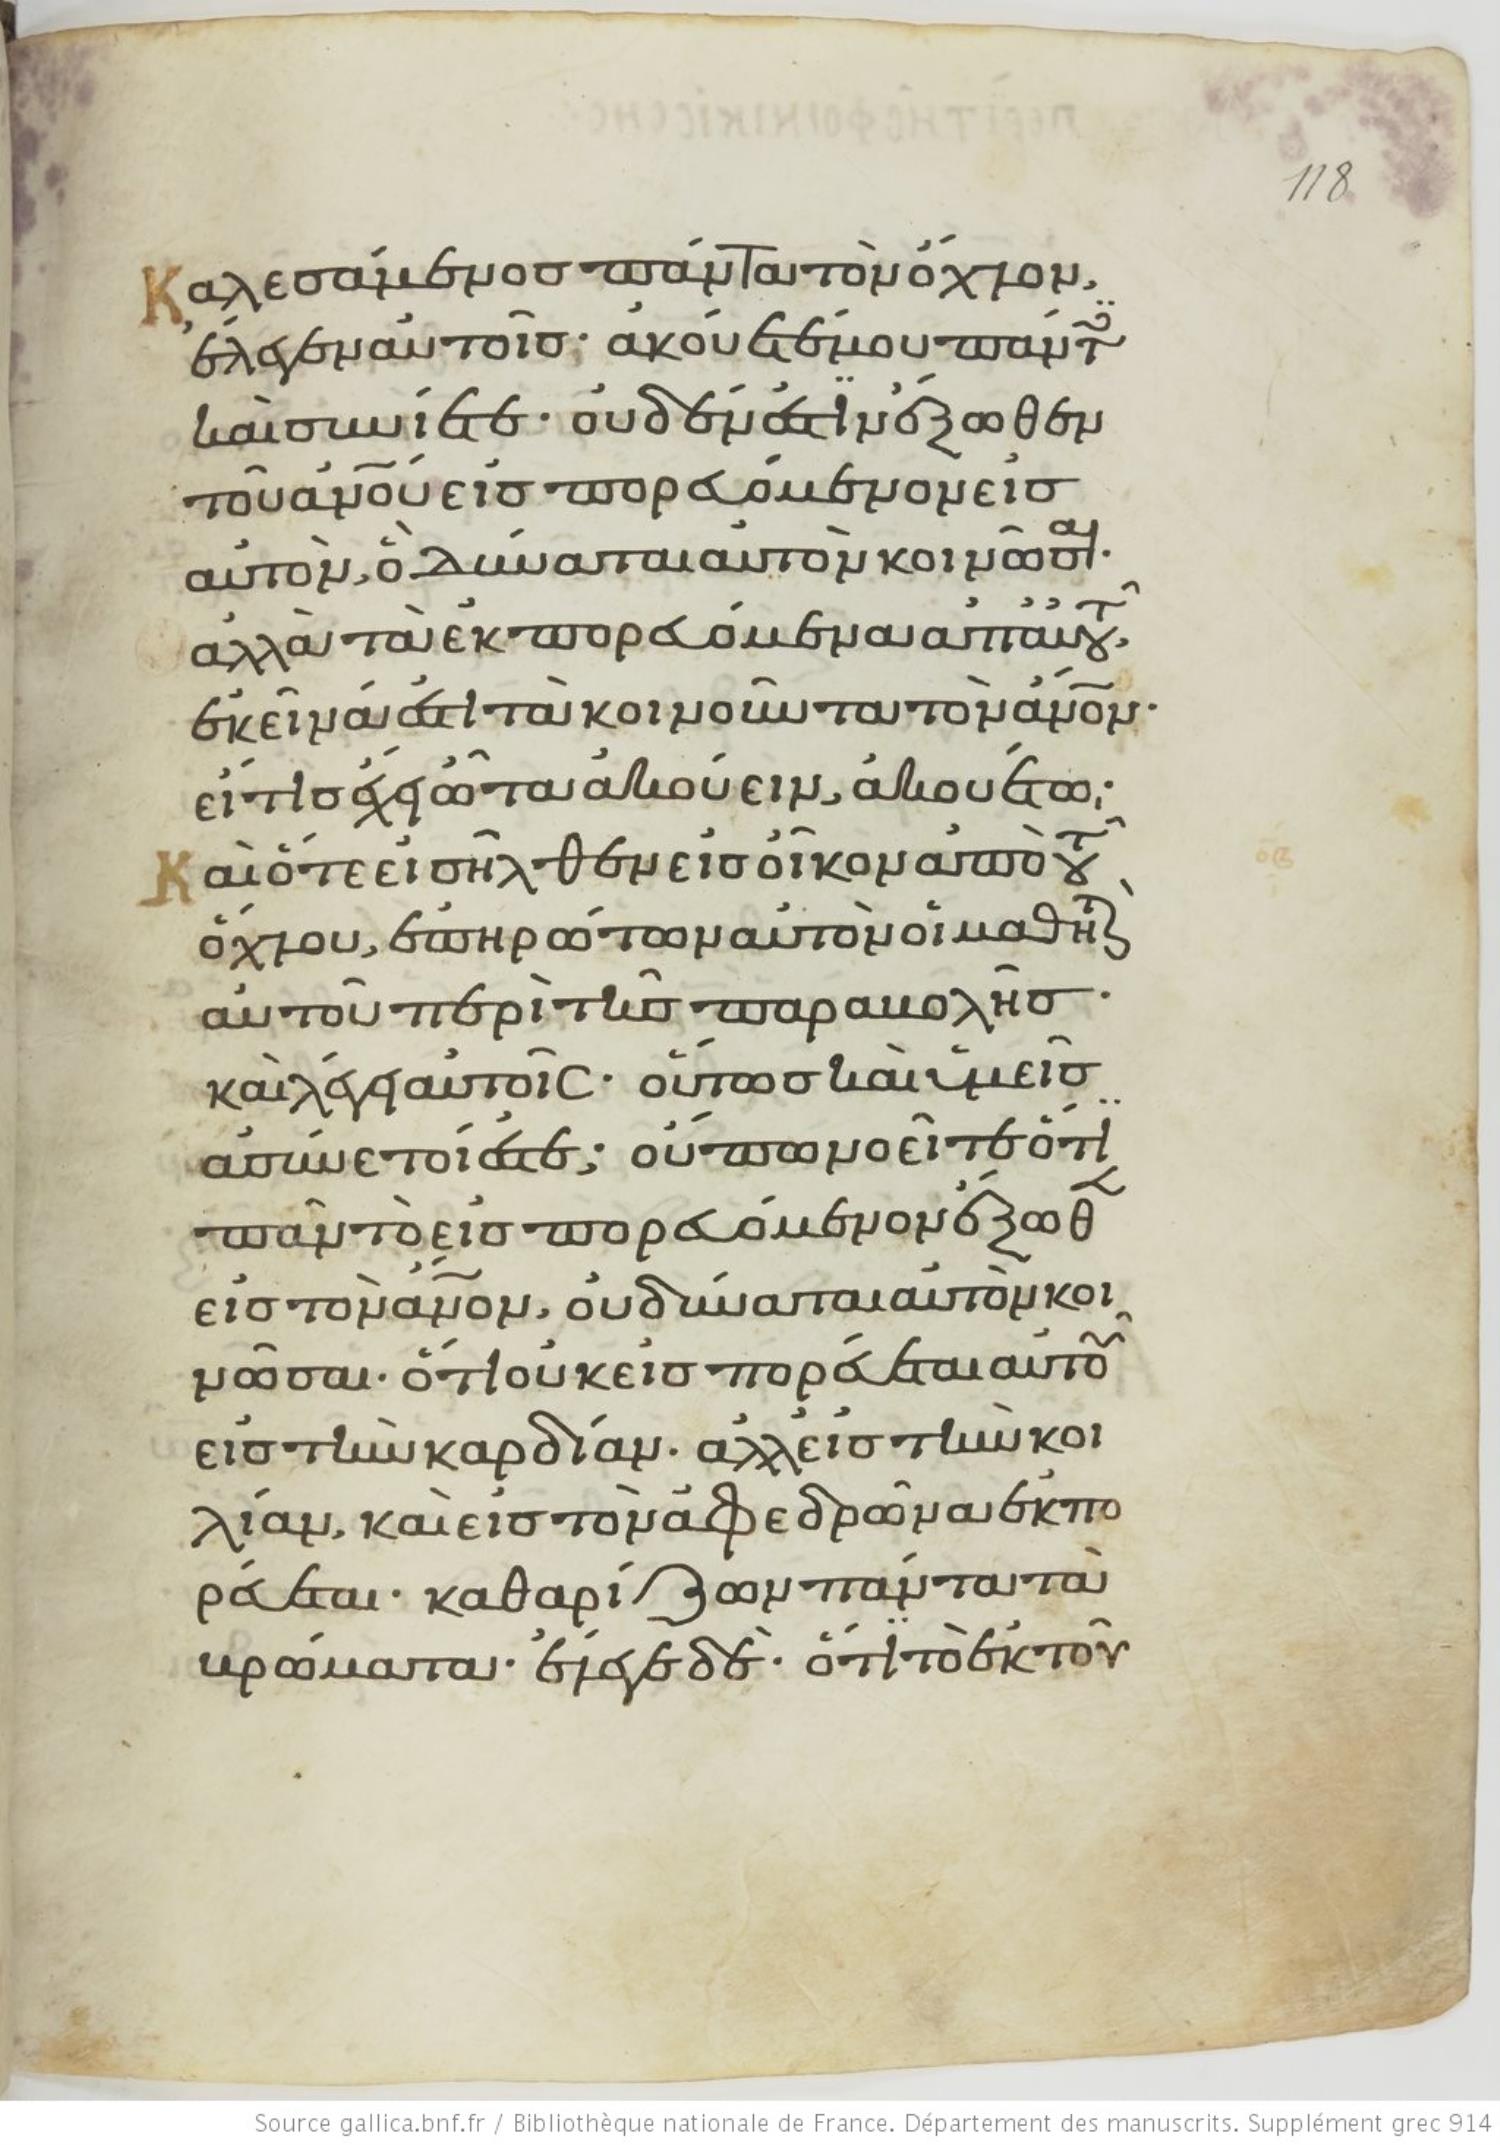 118
Καλεσάμενος πάντα τὸν ὄχλον,
ἔλεγεν αὐτοῖς· ἀκούετέ μου πάντ
καὶ συνίετε· οὐδέν ἐστιν ἔξωθεν
τοῦ ἀνου εἰσπορευόμενον εἰς
αὐτὸν, ὃ δύναται αὐτὸν κοινῶσαι·
ἀλλὰ τὰ ἐκπορευόμενα ἀπ' αὐτοῦ,
ἐκεῖνά ἐστι τὰ κοινοῦντα τὸν ἀνον·
εἴ τις ἔχει ὦτα ἀκούειν, ἀκουέτω·
Καὶ ὅτε εἰσῆλθεν εἰς οἶκον ἀπὸ τοῦ
ὄχλου, ἐπηρώτων αὐτὸν οἱ μαθητ
αὐτοῦ περὶ τῆς παραβολῆς·
καὶ λέγει αὐτοῖς· οὕτως καὶ ὑμεῖς
ἀσύνετοί ἐστε; οὔπω νοεῖτε ὅτι
πᾶν τὸ εἰσπορευόμενον ἔξωθεν
εἰς τὸν ἀνον, οὐ δύναται αὐτὸν κοι
νῶσαι· ὅτι οὐκ εἰσπορεύεται αὐτοῦ
εἰς τὴν καρδίαν· ἀλλ' εἰς τὴν κοι
λίαν, καὶ εἰς τὸν ἀφεδρῶνα ἐκπο
ρεύεται· καθαρίζων πάντα τὰ
βρώματα· ἔλεγε δὲ· ὅτι τὸ ἐκ τοῦ
Source gallica.bnf.fr / Bibliothèque nationale de France. Département des manuscrits. Supplément grec 914